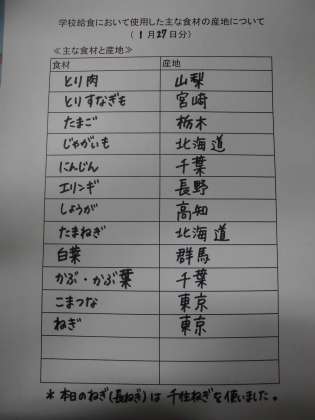 学校給食において使用した主な食材の産地について
(1月27日分)
≪主な食材と産地≫
食材 産地
とり肉 山梨
とりすなぎも 宮崎
たまご 栃木
じゃがいも 北海道
にんじん 千葉
エリンギ 長野
しょうが 高知
たまねぎ 北海道
白菜 群馬
かぶ・かぶ葉 千葉
こまつな 東京
ねぎ 東京
*本日のねぎ(長ねぎ)は千住ねぎを使いました。